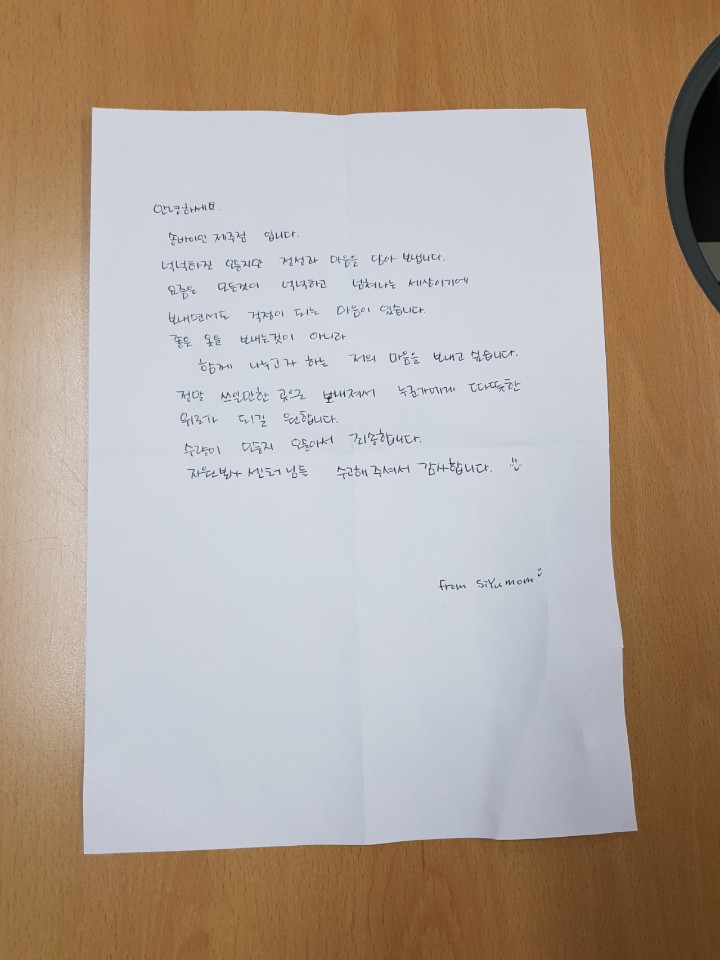 안녕하세요.
솜바이인 제주점 입니다.
넉넉하진 않지만 정성과 마음을 담아 보냅니다.
요즘은 모든것이 넉넉하고 넘쳐나는 세상이기에
보내면서도 걱정이 되는 마음이 있습니다.
좋은 옷을 보내는것이 아니라
함께 나누고자 하는 저의 마음을 보내고 싶습니다.
정말 쓰일만한 곳으로 보내져서 누군가에게 따뜻한
위로가 되길 원합니다.
수량이 많지 않아서 죄송합니다.
자원봉사 센터님들 수고해 주셔서 감사합니다.
from SiYumom